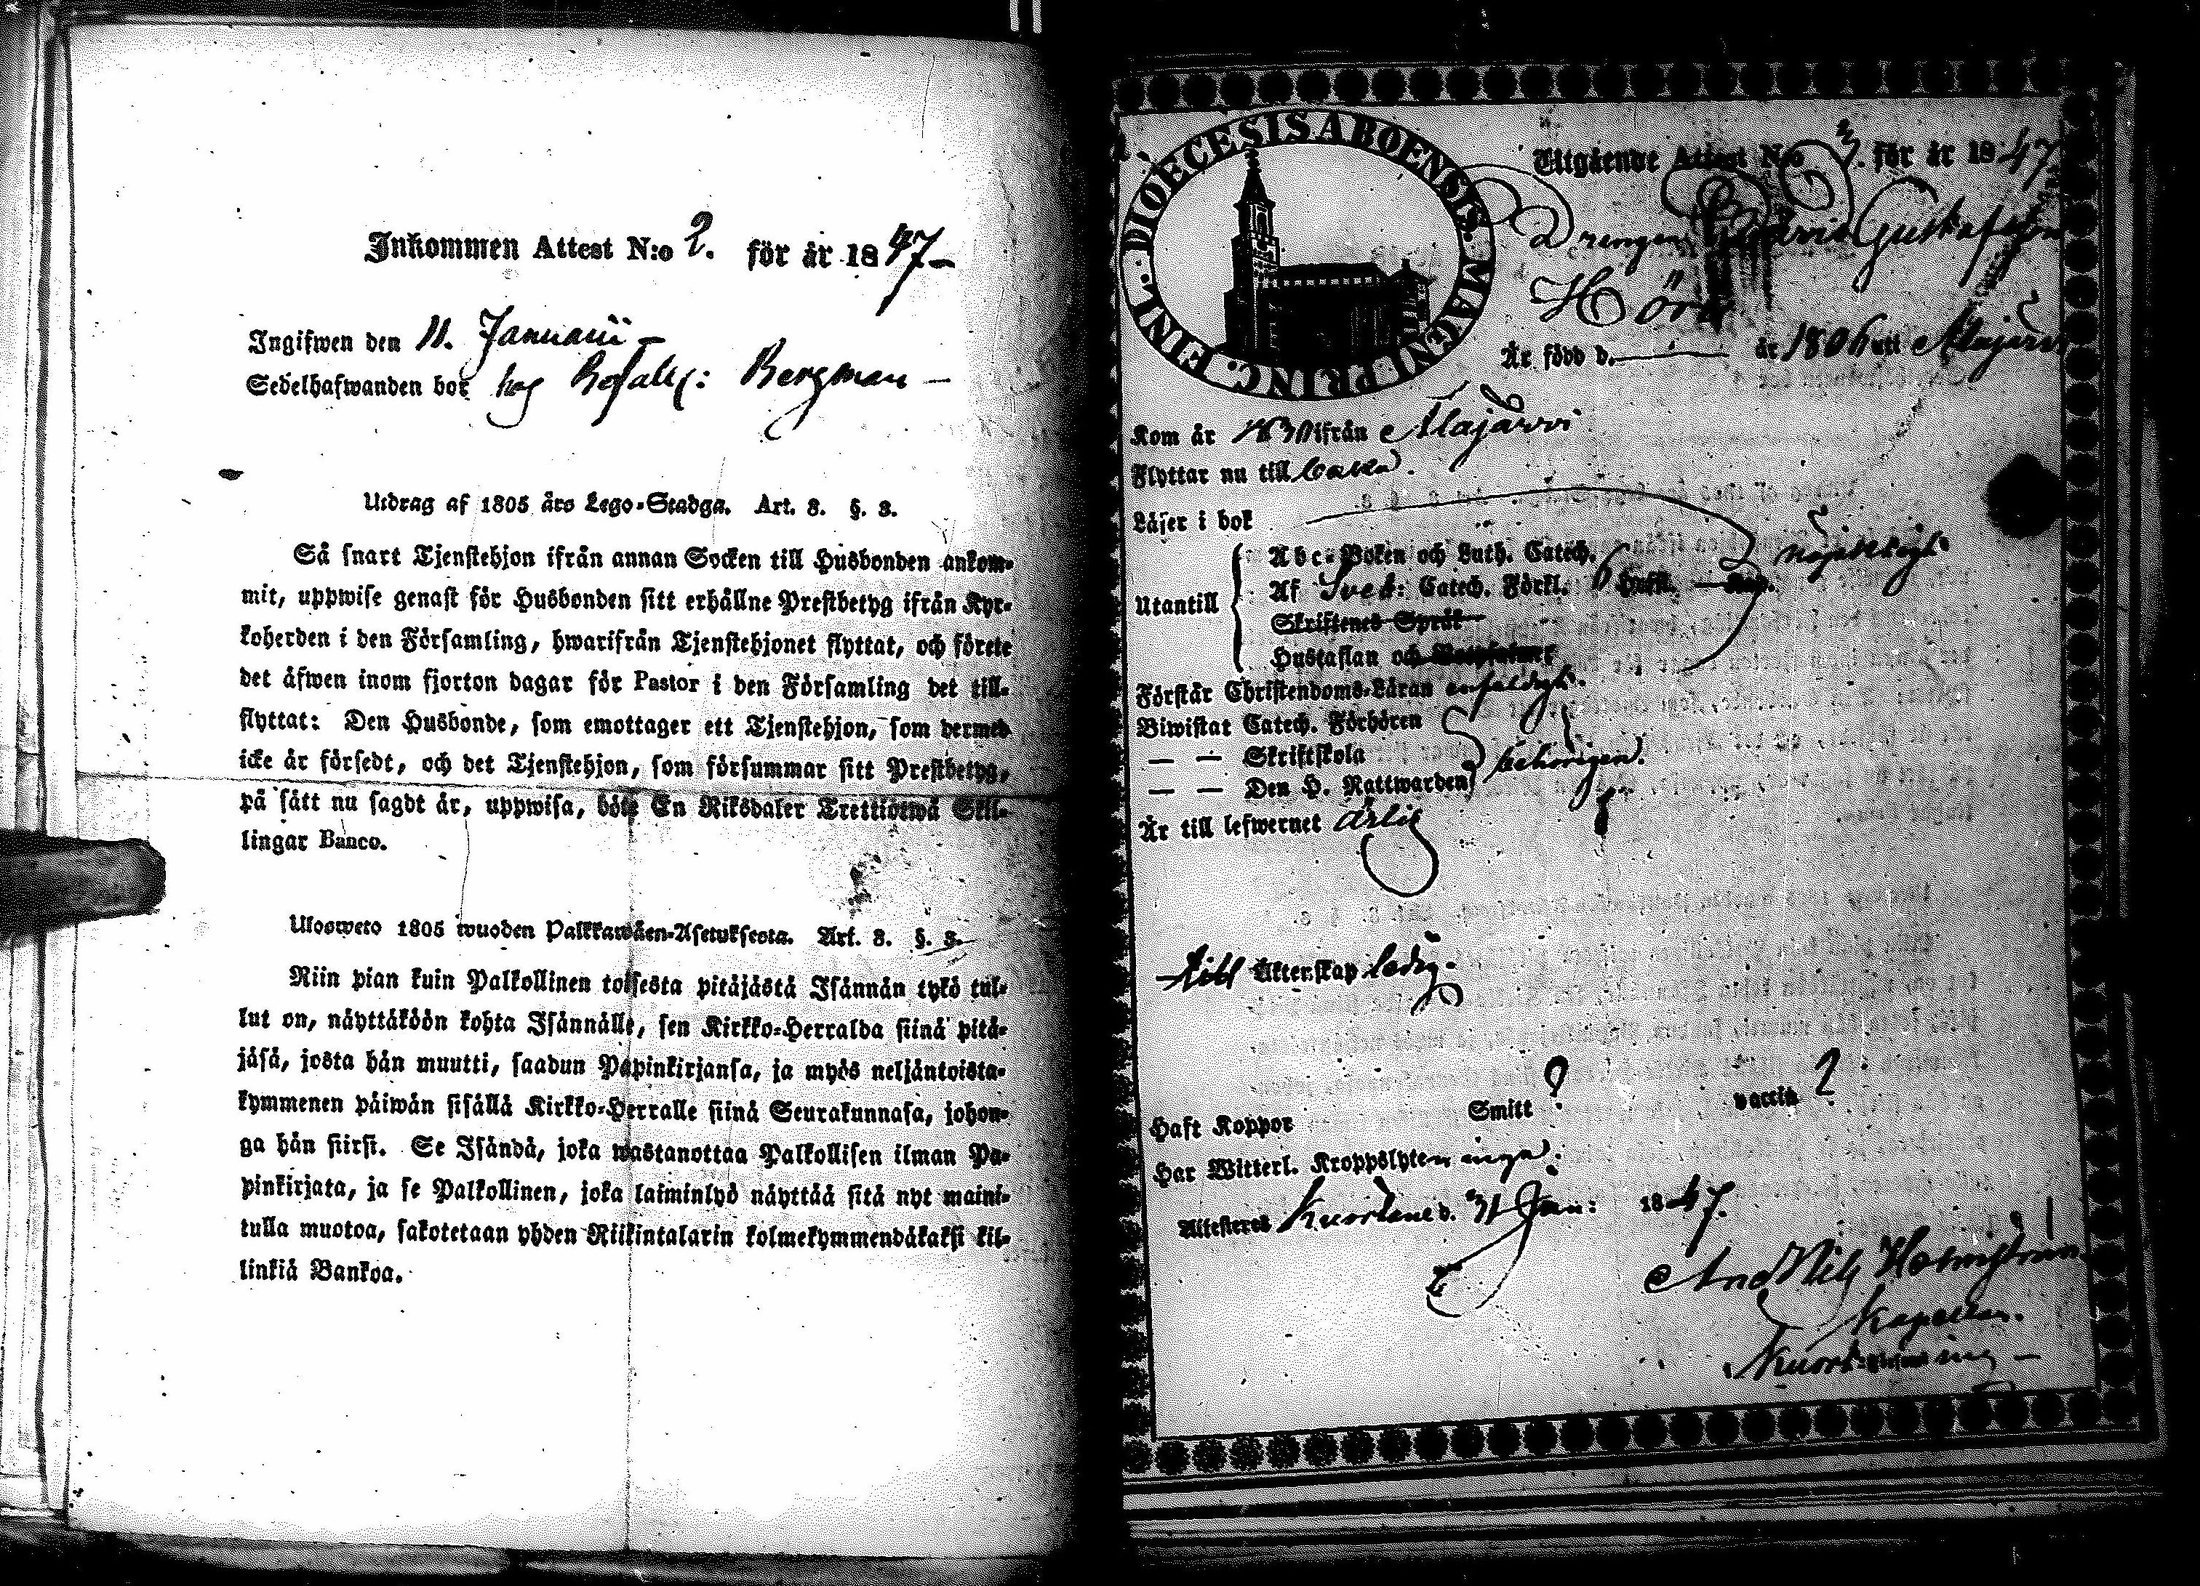 Inkommen Attest N:o 2. för år 1847-
Ingifwen den 11. Januarii -
Sedelhafwanden bor hos Befallz: Bergman -
Utdrag af 1805 års Lego-Stadga. Art. 8. §. 3.
Så snart Tjenstehjon ifrån annan Socken till Husbonden ankom-
mit, uppwise genast för Husbonden sitt erhållne Prestbetyg ifrån Kyr-
koherden i den Församling, hwarifrån Tjenstehjonet flyttat, och förete
det äfwen inom fjorton dagar för Pastor i den Församling det till-
flyttat: Den Husbonde, som emottager ett Tjenstehjon, som dermed
icke är försedt, och det Tjenstehjon, som försummar sitt Prestbetyg,
på sätt nu sagdt är, uppwisa, böte En Riksdaler Trettiotwå Skil-
lingar Banco.
Ulosweto 1805 wuoden Palkkawäen-Asetuksesta. Art. 8. §. 3.
Niin pian kuin Palkollinen toisesta pitäjästä Isännän tykö tul-
lut on, näyttäköön kohta Isännälle, sen Kirkko-Herralda siinä pitä-
jäsä, josta hän muutti, saadun Papinkirjansa, ja myös neljäntoista-
kymmenen päiwän sisällä Kirkko-Herralle siinä Seurakunnasa, johon-
ga hän siirsi. Se Isändä, joka wastanottaa Palkollisen ilman Pa-
pinkirjata, ja se Palkollinen, joka laiminlyö näyttää sitä nyt maini-
tulla muotoa, sakotetaan yhden Riikintalarin kolmekymmendäkaksi kil-
linkiä Bankoa.
DIOECESIS ABOENSIS. MAGNI PRINC. FINL.
Utgående Attest N:o 3. för år 1847
Drengen Gustafsson
Hör
Är född d. — år 1806 uti Alajärvi
Kom år 1830 ifrån Alajärvi
Flyttar nu till
Läser i bok
Abc-Boken och Luth. Catech. nöjaktigt
Utantill Af Sveb: Catech. Förkl. 6 Hufst.
Skriftenes Språk
Hustaflan och
Förstår Christendoms-Läran enfaldigt.
Biwistat Catech. Förhören
— — Skriftskola behörigen.
— — Den H. Nattwarden
Är till lefwernet ärlig
till Äktenskap ledig.
Haft Koppor Smitt ? vaccin ?
Har Witterl. Kroppslyten inga.
Attesteras Kuortane d. 31 Jan: 1847.
And Nils Holmström
Kapellan.